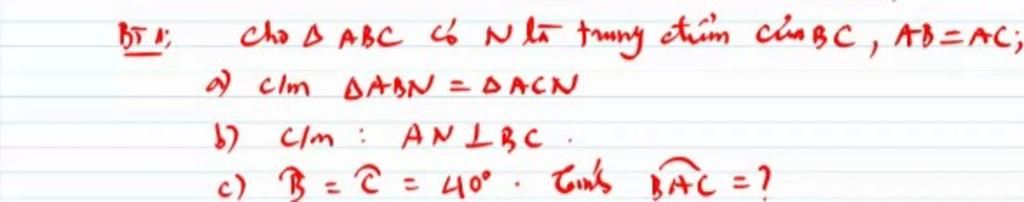 BT 1: Cho Δ ABC có N là trung điểm của BC, AB = AC;
a) c/m ΔABN = ΔACN
b) c/m : AN ⊥ BC .
c) B̂ = Ĉ = 40° . Tính B͡AC = ?